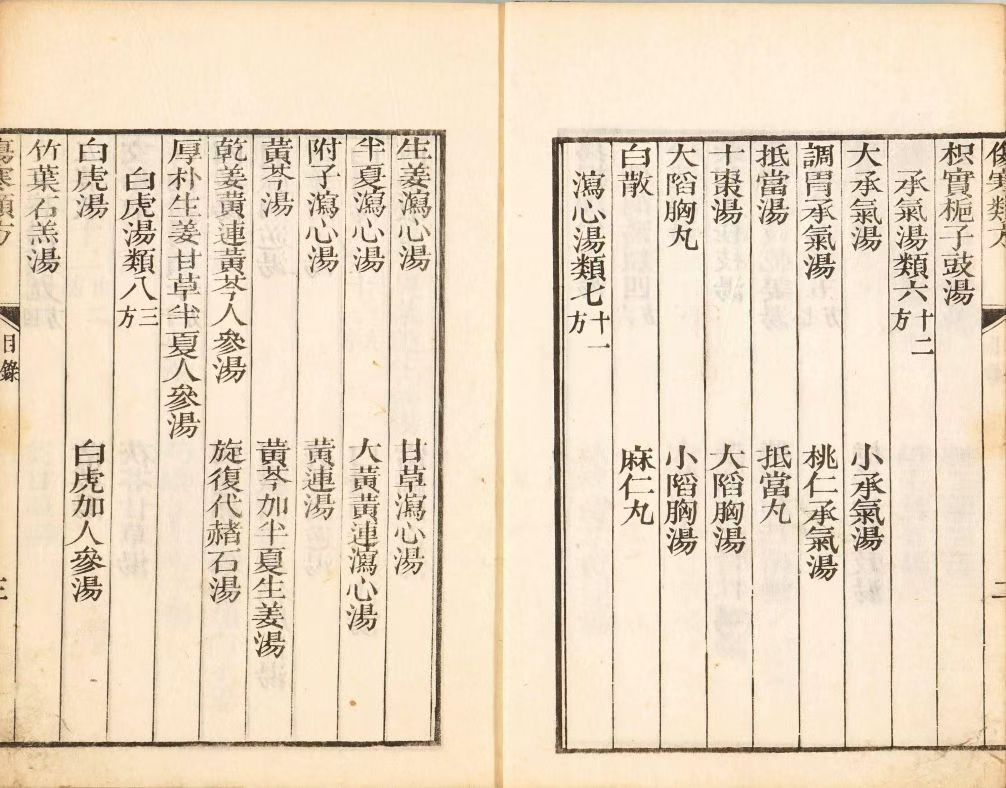 傷寒類方 二
枳實梔子豉湯
承氣湯類六 十二方
大承氣湯 小承氣湯
調胃承氣湯 桃仁承氣湯
抵當湯 抵當丸
十棗湯 大陷胸湯
大陷胸丸 小陷胸湯
白散 麻仁丸
瀉心湯類七 十一方
生姜瀉心湯 甘草瀉心湯
半夏瀉心湯 大黃黃連瀉心湯
附子瀉心湯 黃連湯
黃芩湯 黃芩加半夏生姜湯
乾姜黃連黃芩人參湯 旋復代赭石湯
厚朴生姜甘草半夏人參湯
白虎湯類八 三方
白虎湯 白虎加人參湯
竹葉石羔湯
傷寒類方 目錄 三